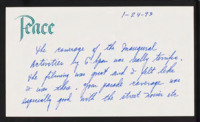 Peace
1-24-93
The coverage of the Inaugural
activities by C-Span was really terrific.
The filming was great and I felt like
I was there. Your parade coverage was
especially good with the street level